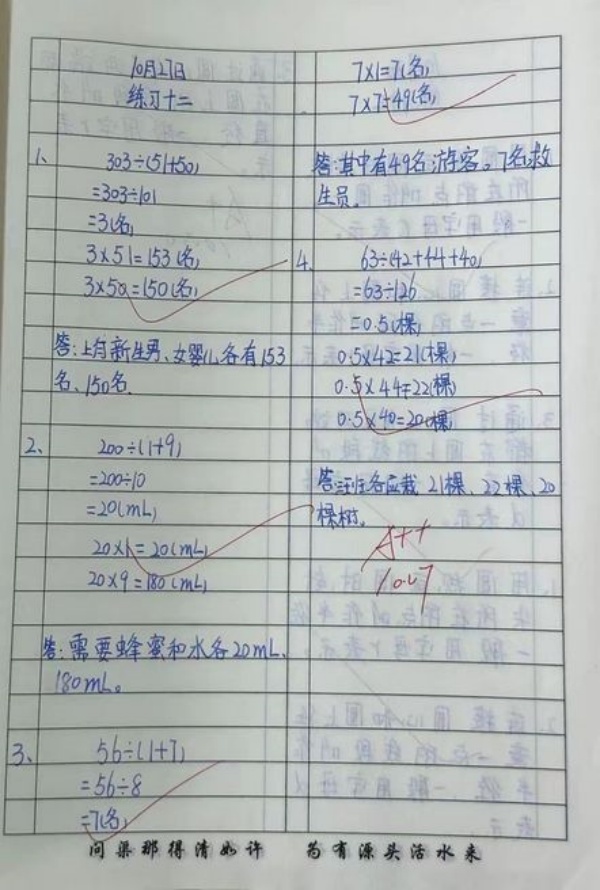 10月27日
练习十二
1、 303÷(51+50)
=303÷101
=3(名)
3×51=153(名)
3×50=150(名)
答:上月新生男、女婴儿各有153
名、150名.
2、 200÷(1+9)
=200÷10
=20(mL)
20×1=20(mL)
20×9=180(mL)
答:需要蜂蜜和水各20mL、
180mL。
3、 56÷(1+7)
=56÷8
=7(名)
7×1=7(名)
7×7=49(名)
答:其中有49名游客。7名救
生员。
4、 63÷(42+44+40)
=63÷126
=0.5(棵)
0.5×42=21(棵)
0.5×44=22(棵)
0.5×40=20(棵)
答:三班各应栽 21棵、22棵、20
棵树。
A++
10.27
问渠那得清如许 为有源头活水来